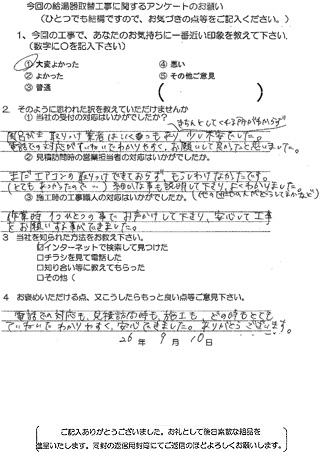 今回の給湯器取替工事に関するアンケートのお願い
(ひとつでも結構ですので、お気づきの点等をご記入ください。)
1、今回の工事で、あなたのお気持ちに一番近い印象を教えて下さい.
(数字に○を記入下さい)
①大変よかった ④悪い
②よかった ⑤その他ご意見
③普通 ( )
2. そのように思われた訳を教えていただけませんか
①当社の受付の対応はいかがでしたか?
きちんとしてくれる所か分からず
取りつけ業者はいくつもあり、少し不安でした。
電話での対応がていねいでわかりやすく、お願いして良かったと思いました。
②見積訪問時の営業担当者の対応はいかがでしたか。
まだエアコンの取りつけできておらず、もうしわけなかったです。
(とてもあつかったので…)細かな事も説明して下さり、よくわかりました。
③施工時の工事職人の対応はいかがでしたか?
作業時1つ1つの事でお声かけして下さり、安心して工事
をお願いする事ができました。
3 当社を知られた方法をお教え下さい。
☑インターネットで検索して見つけた
□チラシを見て電話した
□知り合い等に教えてもらった
□その他(
4 お褒めいただける点、又こうしたらもっと良い点等ご意見下さい。
電話での対応も、見積訪問時も、施工も、どの時もとても
ていねいでわかりやすく、安心できました。ありがとうございます。
26年 9月 10日
ご記入ありがとうございました。お礼として後日素敵な粗品を
進呈いたします。同封の返信用封筒にてご返信のほどよろしくお願いします。